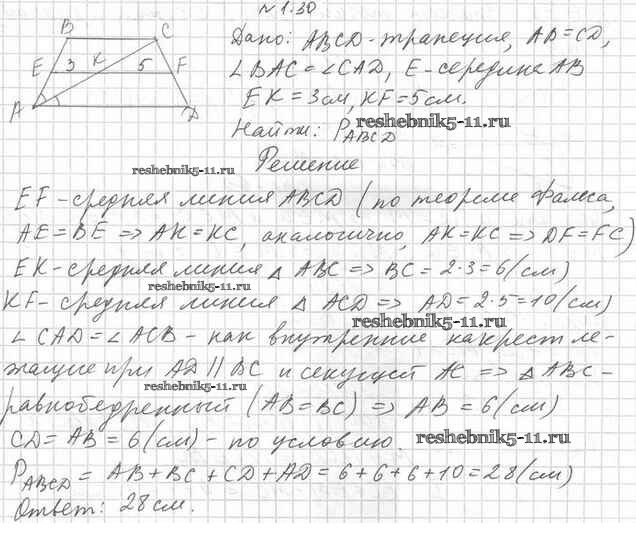 №1.30
B C
E 3 K 5 F
A D
Дано: ABCD-трапеция, AB=CD,
∠BAC=∠CAD, E-середина AB
EK=3см, KF=5см.
reshebnik5-11.ru
Найти: P ABCD
reshebnik5-11.ru
Решение
EF-средняя линия ABCD (по теореме Фалеса,
AE=BE => AK=KC, аналогично, AK=KC => DF=FC)
EK-средняя линия △ ABC => BC=2·3=6(см)
reshebnik5-11.ru
KF-средняя линия △ ACD => AD=2·5=10(см)
reshebnik5-11.ru
∠CAD=∠ACB-как внутренние накрест ле-
жащие при AD||BC и секущей AC => △ABC-
reshebnik5-11.ru
равнобедренный (AB=BC) => AB=6(см)
CD=AB=6(см)-по условию.
reshebnik5-11.ru
P ABCD = AB+BC+CD+AD=6+6+6+10=28(см)
Ответ: 28см.